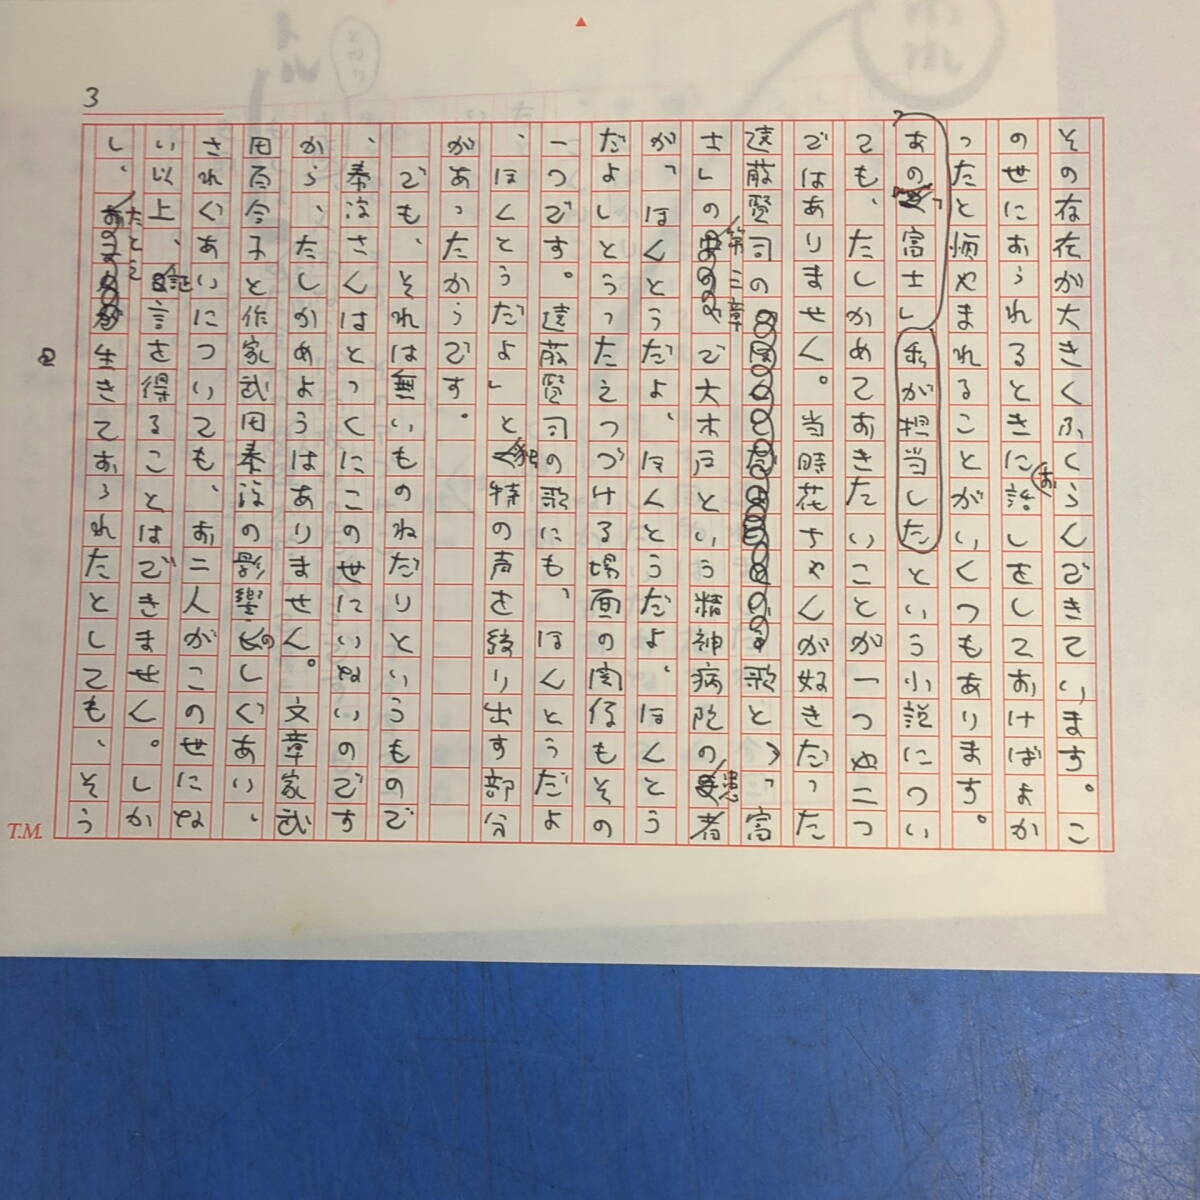 3
その存在が大きくふくらんできています。こ
のせにおられるときにお話しをしておけばよか
ったと悔やまれることがいくつもあります。
「富士」私が担当したという小説につい
ても、たしかめておきたいことが一つや二つ
ではありません。当時花ちゃんが好きだった
遠藤賢司の歌と、「富
士」の第三章で大木戸という精神病院の患者
が「ほんとうだよ、ほんとうだよ、ほんとう
だよ」とうったえつづける場面の関係もその
一つです。遠藤賢司の歌にも、ほんとうだよ
、ほんとうだよ」と独特の声を絞り出す部分
があったからです。
でも、それは無いものねだりというもので
、泰淳さんはとっくにこの世にいないのです
から、たしかめようはありません。文章家武
田百合子と作家武田泰淳の影響のしぐあい、
されぐあいについても、お二人がこのせにな
い以上、証言を得ることはできません。しか
し、たとえ生きておられたとしても、そう
T.M.